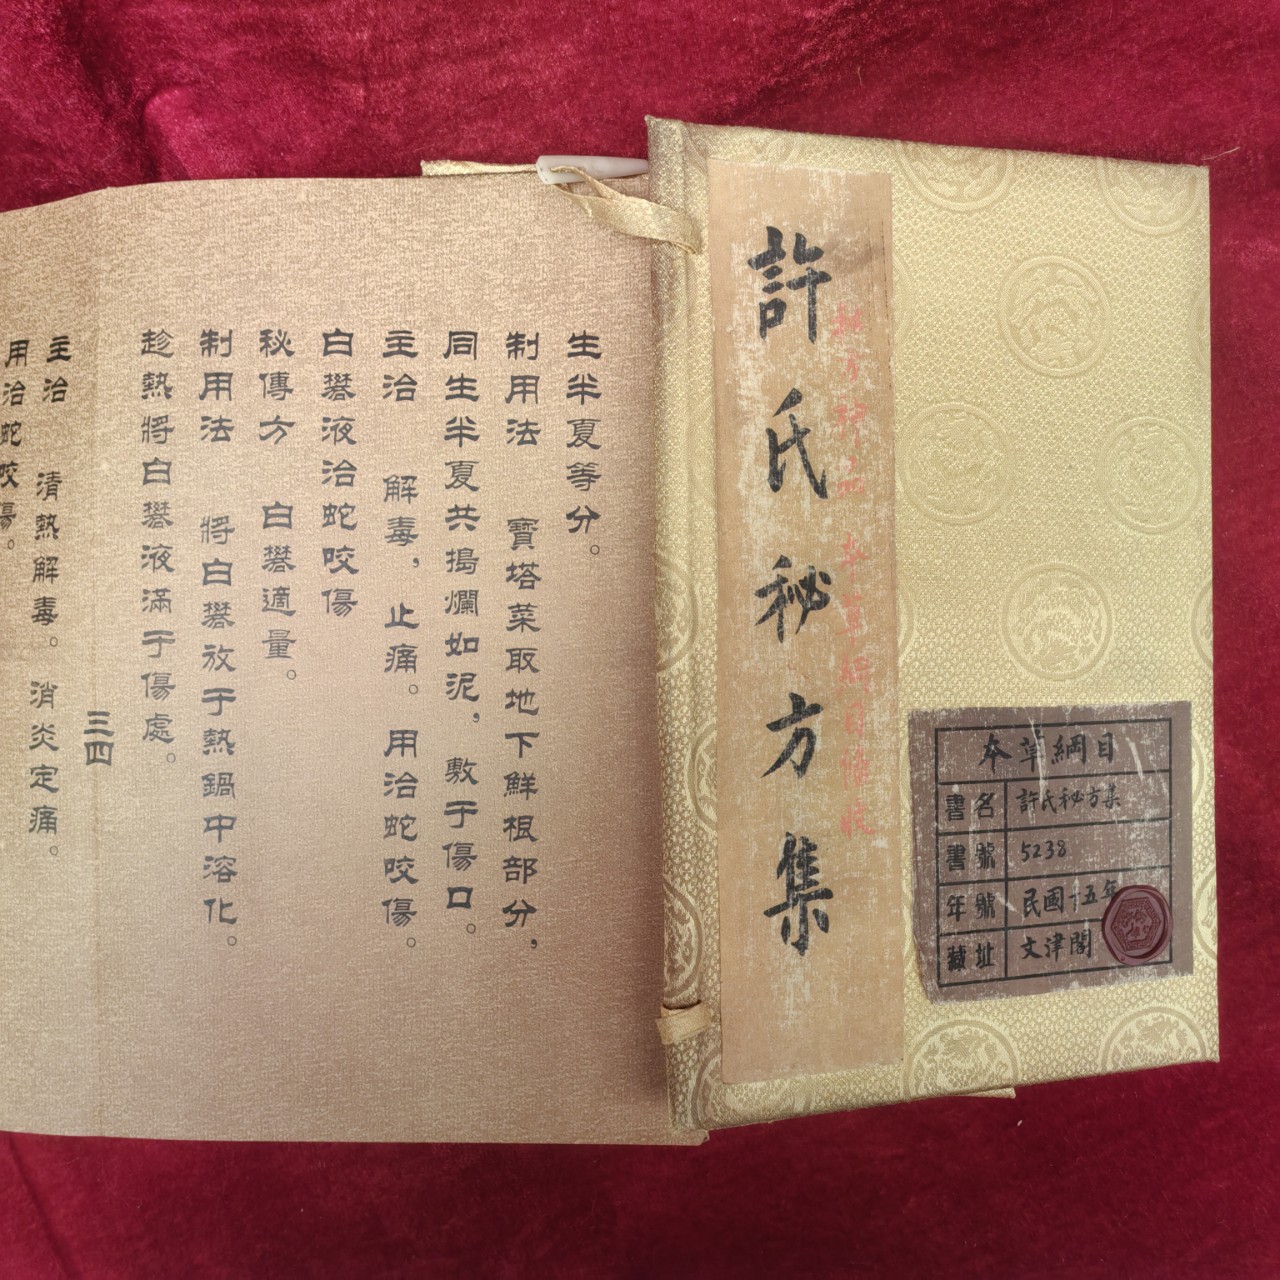 許氏秘方集
本草綱目
書名 許氏秘方集
書號 5238
年號 民國十五年
藏址 文津閣
生半夏等分。
制用法 寶塔菜取地下鮮根部分，
同生半夏共搗爛如泥，敷于傷口。
主治 解毒，止痛。用治蛇咬傷。
白礬液治蛇咬傷
秘傳方 白礬適量。
制用法 將白礬放于熱鍋中溶化。
趁熱將白礬液滿于傷處。
三四
主治 清熱解毒。消炎定痛。
用治蛇咬傷。